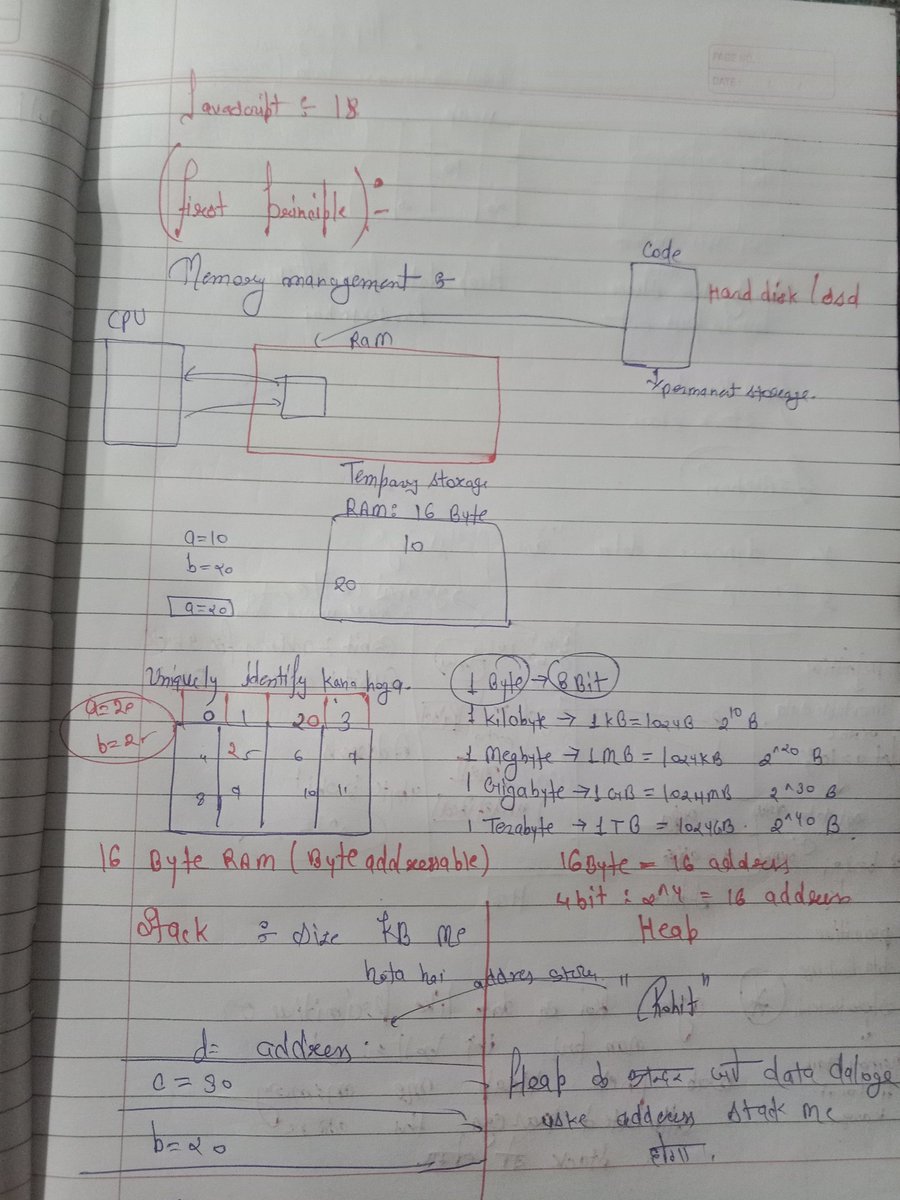 PAGE NO.
DATE:
Javascript : 18
(first principle) :-
Memory management :
Code
Hard disk / ssd
CPU
RAM
permanat storage.
Tempary storage
RAM: 16 Byte
a=10
10
b=20
20
a=20
Uniquely identify kana hoga.
1 Byte → 8 Bit
a=20
b=25
0 1 20 3
4 25 6 7
8 9 10 11
1 kilobyte → 1 KB = 1024B 2^10 B
1 Megbyte → 1 MB = 1024KB 2^20 B
1 Gigabyte → 1 GB = 1024MB 2^30 B
1 Terabyte → 1 TB = 1024GB. 2^40 B.
16 Byte RAM (Byte addressable)
16Byte = 16 address
4 bit : 2^4 = 16 address
Stack : size KB me
hota hai
Heap
addres store
"Rohit"
d= address.
b=20
Heap के अन्दर जो data daloge
uske address stack me
होगा.